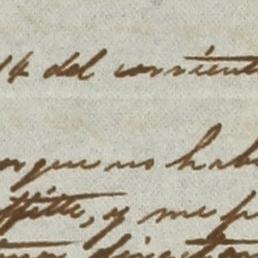 14 del corriente
orque no hab
ffitte, y me p